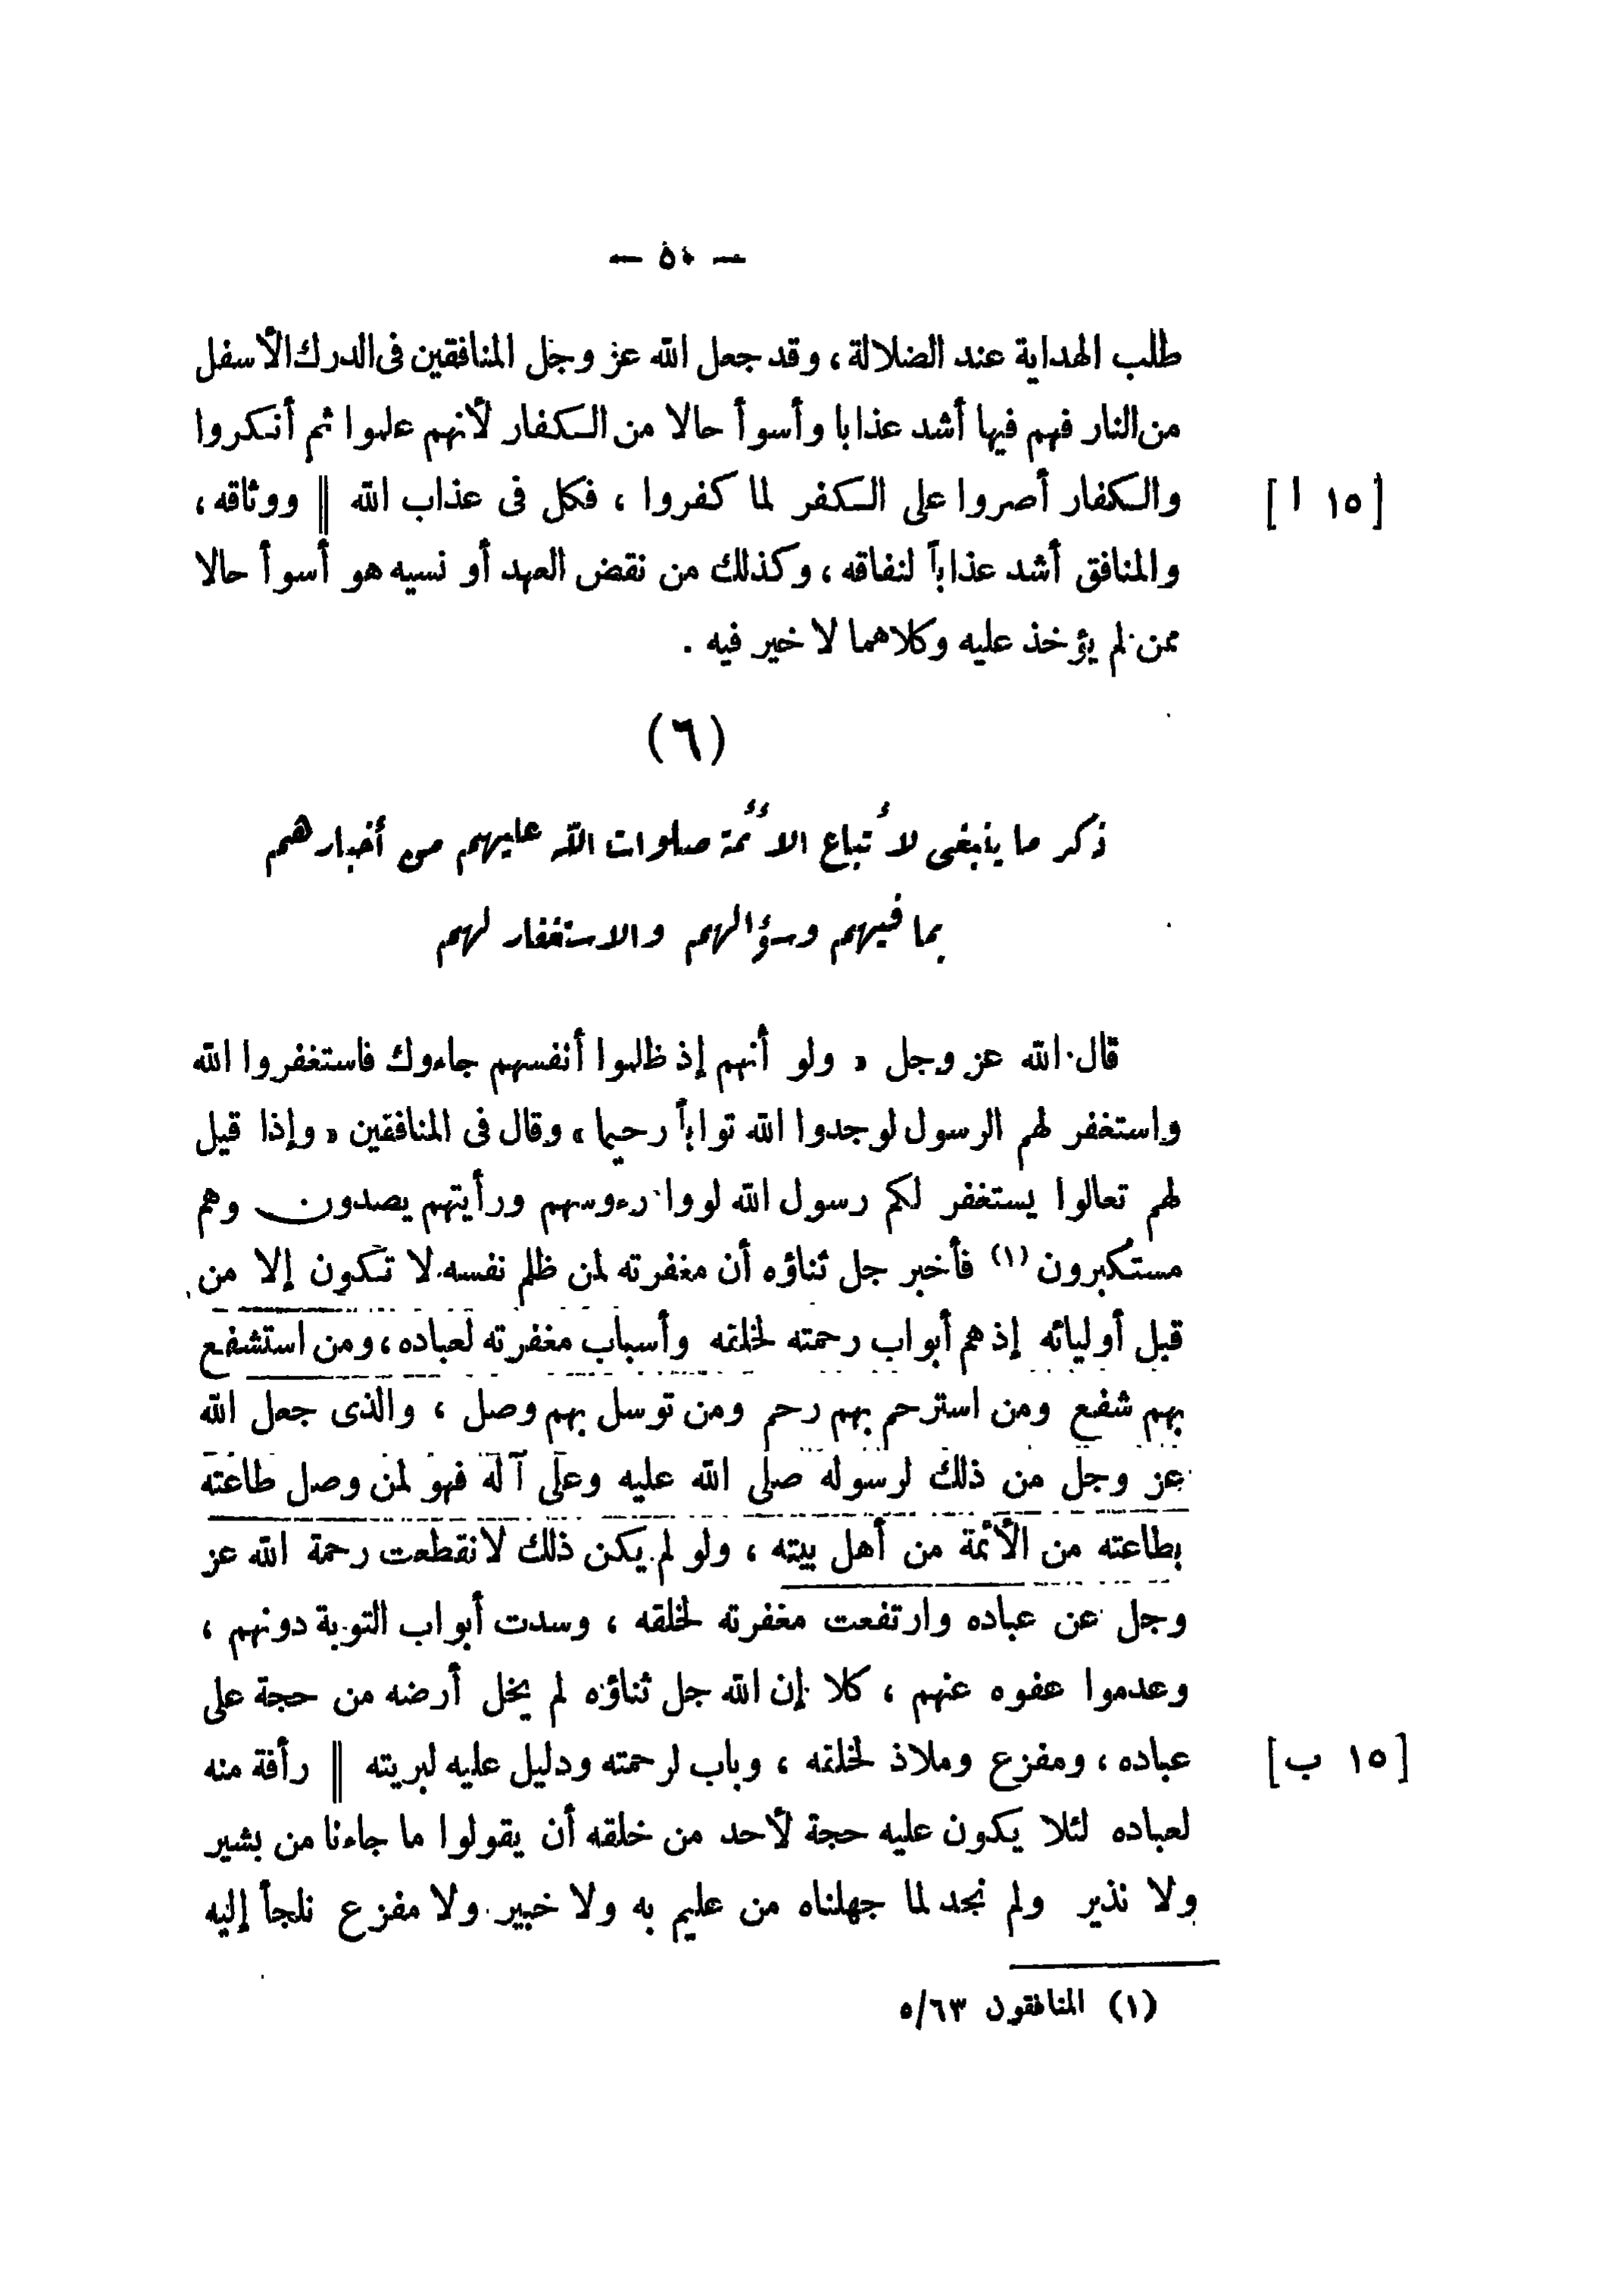 — ٥٠ —
طلب الهداية عند الضلالة ، وقد جعل الله عز وجل المنافقين فى الدرك الأسفل
من النار فهم فيها أشد عذابا وأسوأ حالا من الكفار لأنهم علموا ثم أنكروا
والكفار أصروا على الكفر لما كفروا ، فكل فى عذاب الله || ووثاقه ، [ ١٥ ا ]
والمنافق أشد عذاباً لنفاقه ، وكذلك من نقض العهد أو نسيه هو أسوأ حالا
ممن لم يؤخذ عليه وكلاهما لا خير فيه .
(٦)
ذكر ما ينبغى لأتباع الأئمة صلوات الله عليهم من أخبارهم
بما فيهم وسؤالهم والاستغفار لهم
قال الله عز وجل « ولو أنهم إذ ظلموا أنفسهم جاءوك فاستغفروا الله
واستغفر لهم الرسول لوجدوا الله تواباً رحيما » وقال فى المنافقين « وإذا قيل
لهم تعالوا يستغفر لكم رسول الله لووا رءوسهم ورأيتهم يصدون وهم
مستكبرون (١) فأخبر جل ثناؤه أن مغفرته لمن ظلم نفسه لا تكون إلا من
قبل أوليائه إذ هم أبواب رحمته لخلقه وأسباب مغفرته لعباده ، ومن استشفع
بهم شفع ومن استرحم بهم رحم ومن توسل بهم وصل ، والذى جعل الله
عز وجل من ذلك لرسوله صلى الله عليه وعلى آله فهو لمن وصل طاعته
بطاعته من الأئمة من أهل بيته ، ولو لم يكن ذلك لانقطعت رحمة الله عز
وجل عن عباده وارتفعت مغفرته لخلقه ، وسدت أبواب التوبة دونهم ،
وعدموا عفوه عنهم ، كلا إن الله جل ثناؤه لم يخل أرضه من حجة على
عباده ، ومفزع وملاذ لخلقه ، وباب لرحمته ودليل عليه لبريته || رأفة منه [ ١٥ ب ]
لعباده لئلا يكون عليه حجة لأحد من خلقه أن يقولوا ما جاءنا من بشير
ولا نذير ولم نجد لما جهلناه من عليم به ولا خبير ولا مفزع نلجأ إليه
(١) المنافقون ٥/٦٣